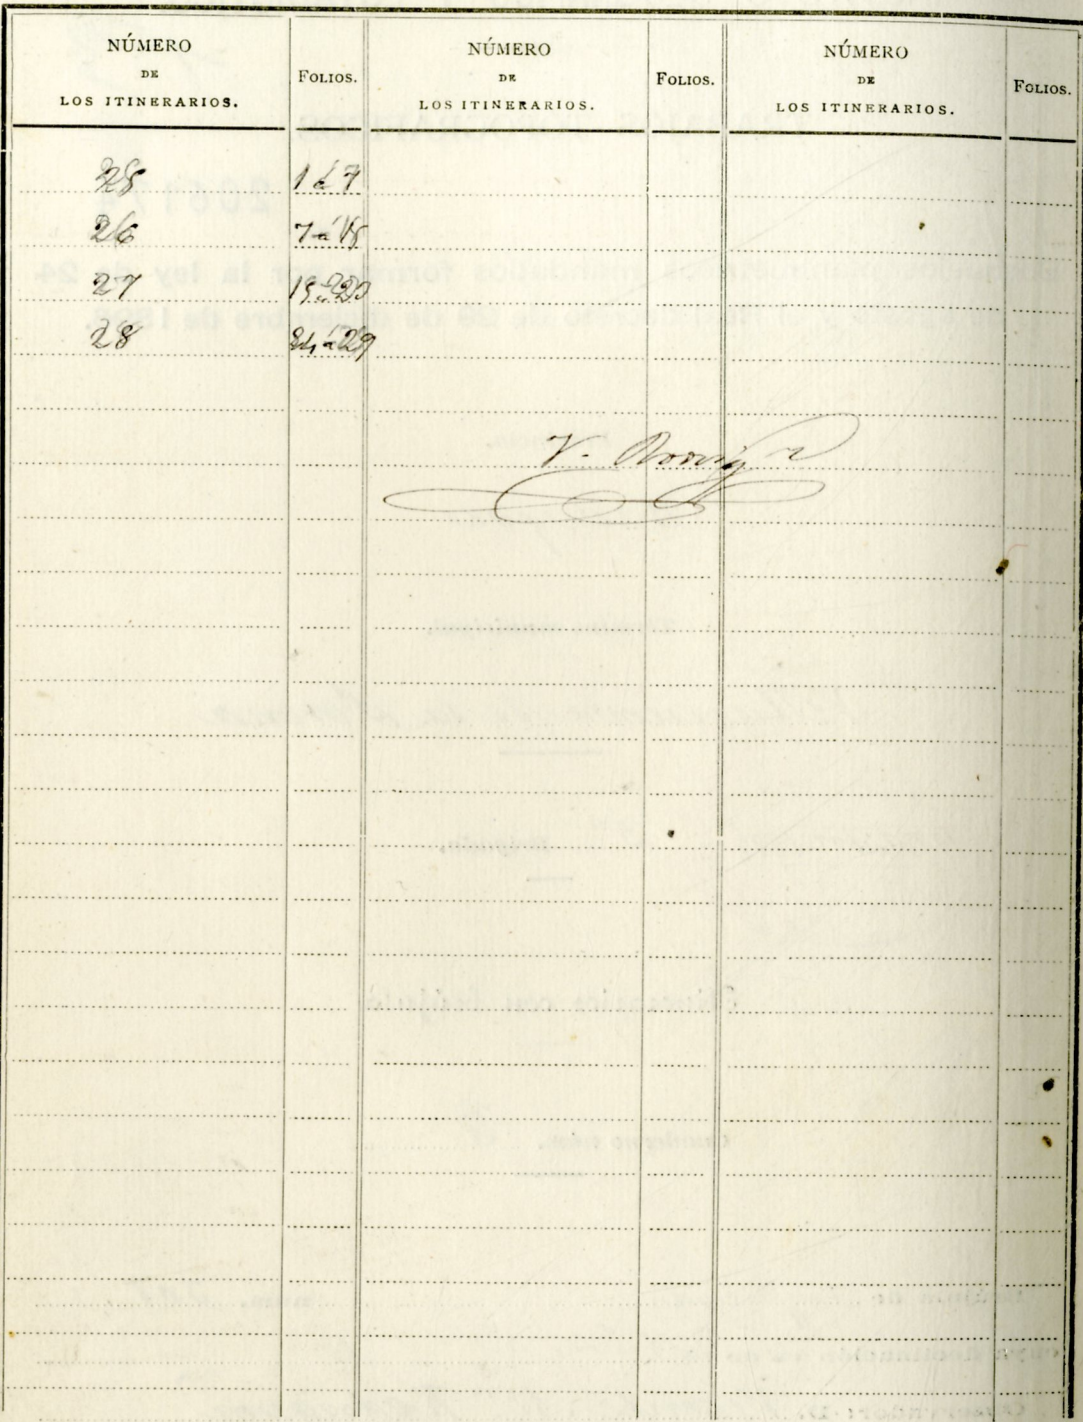 NÚMERO DE LOS ITINERARIOS. FOLIOS. NÚMERO DE LOS ITINERARIOS. FOLIOS. NÚMERO DE LOS ITINERARIOS. FOLIOS.
1 á 7
26 7 á 15
27 15 á 20
28 á 29
V.